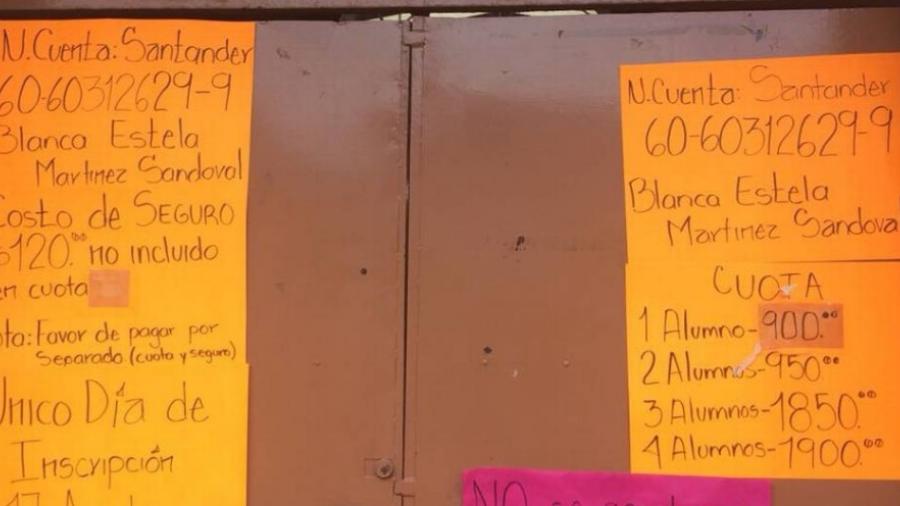 N. Cuenta: Santander
60-60312629-9
Blanca Estela
Martinez Sandoval
Costo de SEGURO
$120.00 no incluido
en cuota
Nota: Favor de pagar por
Separado (cuota y seguro)
Unico Día de
Inscripción
N. Cuenta: Santander
60-60312629-9
Blanca Estela
Martinez Sandova
CUOTA
1 Alumno-900.00
2 Alumnos-950.00
3 Alumnos-1850.00
4 Alumnos-1900.00
NO